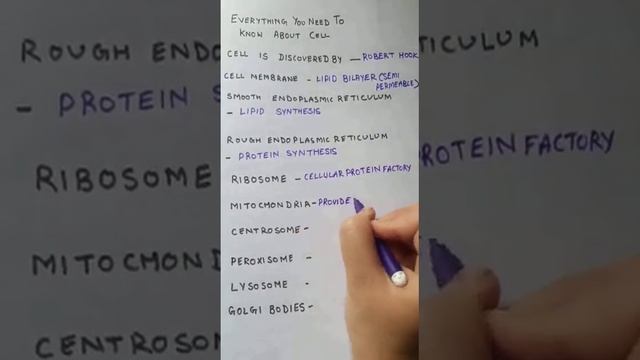 EVERYTHING YOU NEED TO
KNOW ABOUT CELL
CELL IS DISCOVERED BY - ROBERT HOOK
CELL MEMBRANE - LIPID BILAYER (SEMI
PERMEABLE)
SMOOTH ENDOPLASMIC RETICULUM
- LIPID SYNTHESIS
ROUGH ENDOPLASMIC RETICULUM
- PROTEIN SYNTHESIS
RIBOSOME - CELLULAR PROTEIN FACTORY
MITOCHONDRIA - PROVIDE
CENTROSOME -
PEROXISOME -
LYSOSOME -
GOLGI BODIES -
ROUGH ENDO
TICULUM
- PROTEIN S
RIBOSOME
PROTEIN FACTORY
MITOCHOND
CENTROSOM